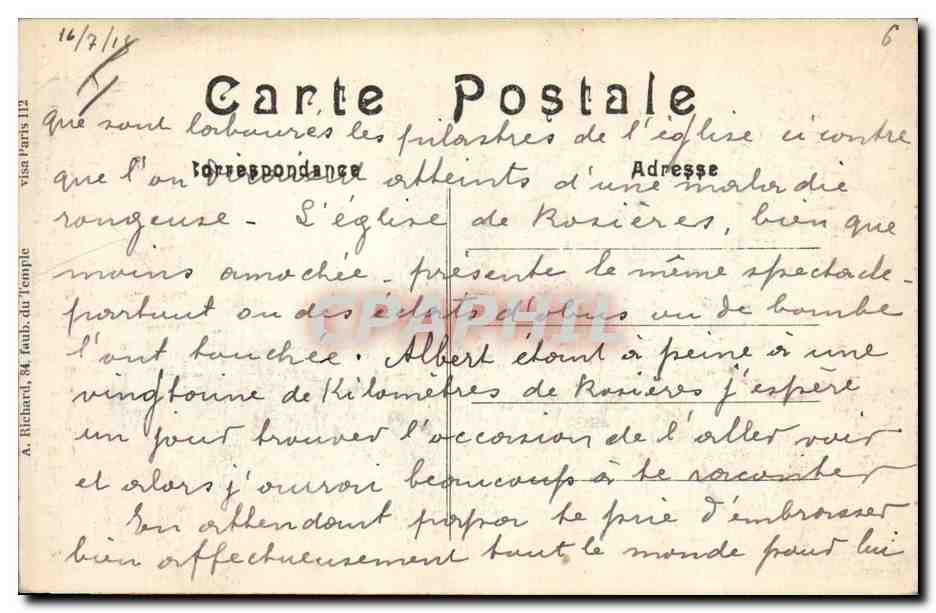 16/7/18
6
Carte Postale
que sont labourés les pilastres de l'église ci contre
Correspondance
Adresse
que l'on dirait atteints d'une maladie
rongeuse - L'église de Rosières, bien que
moins amochée - présente le même spectacle -
partout où des éclats d'obus ou de bombe
l'ont touchée. Albert étant à peine à une
vingtaine de Kilomètres de Rosières j'espère
un jour trouver l'occasion de l'aller voir
et alors j'aurai beaucoup à te raconter
En attendant papa te prie d'embrasser
bien affectueusement tout le monde pour lui
A. Richard, 84, faub. du Temple visa Paris 112
CPAPHIL